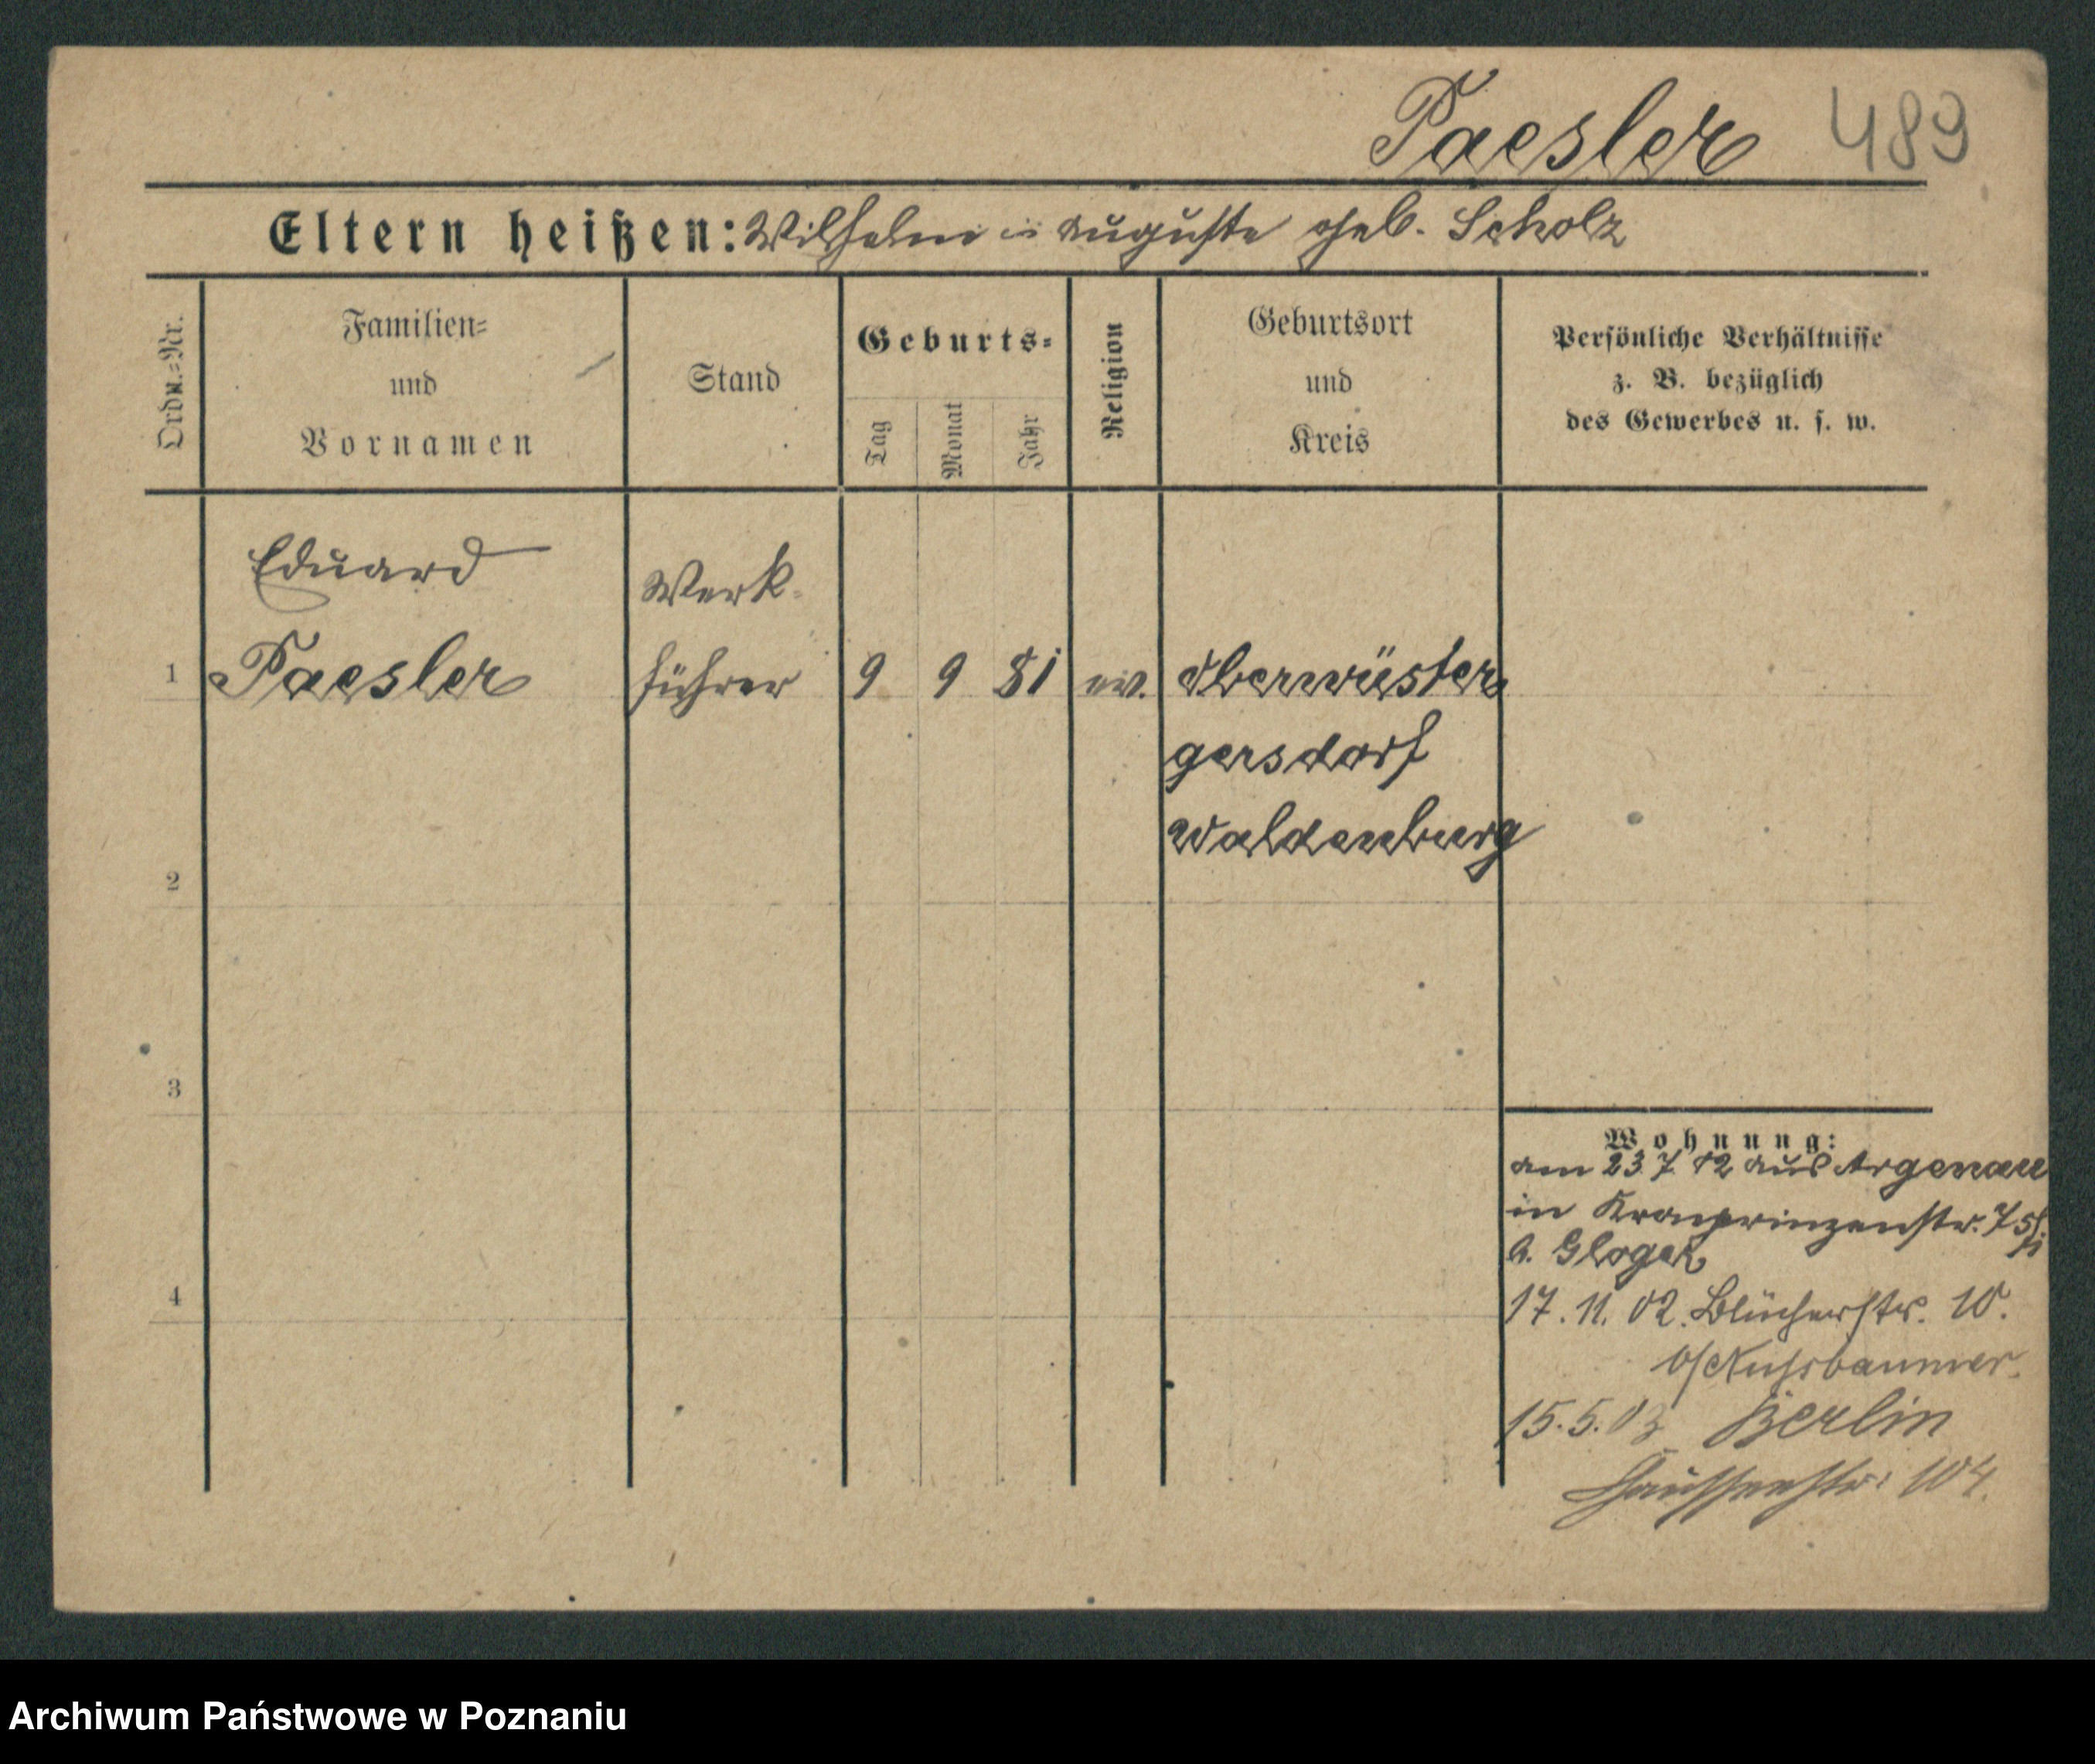 Paesler 489
Eltern heißen: Wilhelm u Auguste geb. Scholz
Ordn.-Nr.
Familien-
und
Vornamen
Stand
Geburts-
Tag
Monat
Jahr
Religion
Geburtsort
und
Kreis
Persönliche Verhältnisse
z. B. bezüglich
des Gewerbes u. s. w.
Eduard
Werk-
1 Paesler führer 9 9 81 ev. Oberwüster
gersdorf
Waldenburg
2
3
4
Wohnung:
am 23 7 02 aus Argenau
in Kronprinzenstr. 75
b. Gloger
17. 11. 02. Blücherstr. 10.
b/ Nussbaumer.
15. 5. 03 Berlin
Chausseestr. 104.
Archiwum Państwowe w Poznaniu